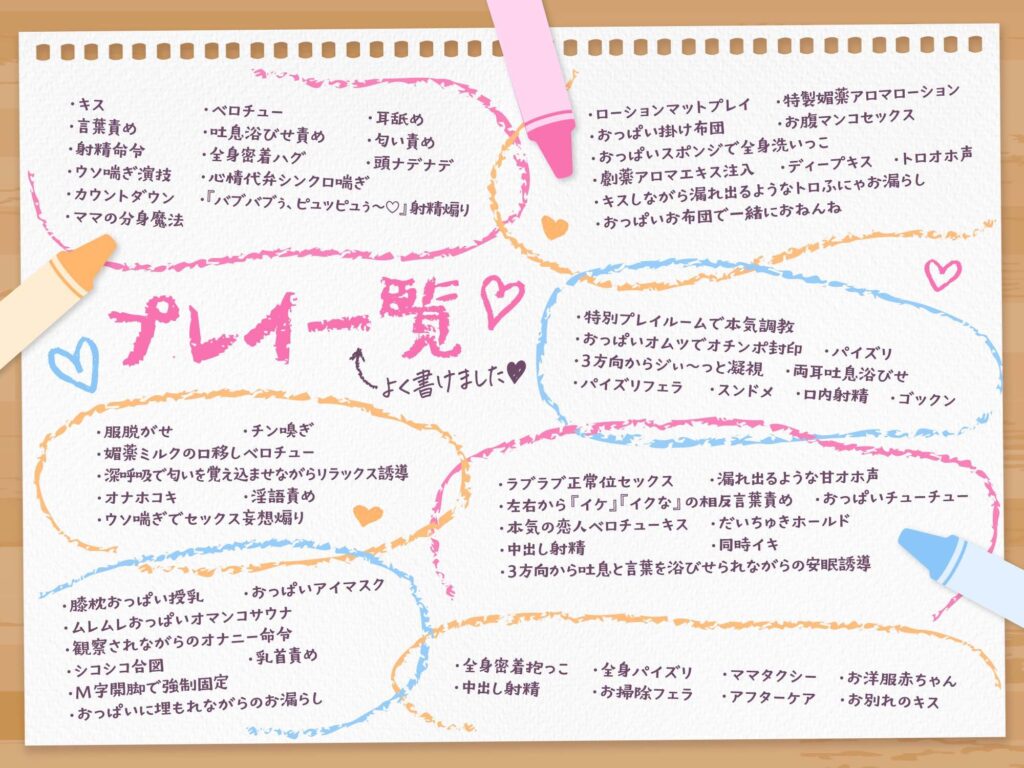 ・キス
・言葉責め
・射精命令
・ウソ喘ぎ演技
・カウントダウン
・ママの分身魔法
・ベロチュー
・吐息浴びせ責め
・全身密着ハグ
・心情代弁シンクロ喘ぎ
・『バブバブぅ、ピュッピュぅ～♡』射精煽り
・耳舐め
・匂い責め
・頭ナデナデ
・ローションマットプレイ
・特製媚薬アロマローション
・おっぱい掛け布団
・お腹マンコセックス
・おっぱいスポンジで全身洗いっこ
・劇薬アロマエキス注入
・ディープキス
・トロオホ声
・キスしながら漏れ出るようなトロふにゃお漏らし
・おっぱいお布団で一緒におねんね
プレイ一覧
よく書けました♥
・特別プレイルームで本気調教
・おっぱいオムツでオチンポ封印
・パイズリ
・3方向からジぃ～っと凝視
・両耳吐息浴びせ
・パイズリフェラ
・スンドメ
・口内射精
・ゴックン
・服脱がせ
・チン嗅ぎ
・媚薬ミルクの口移しベロチュー
・深呼吸で匂いを覚え込ませながらリラックス誘導
・オナホコキ
・淫語責め
・ウソ喘ぎでセックス妄想煽り
・ラブラブ正常位セックス
・漏れ出るような甘オホ声
・左右から『イケ』『イクな』の相反言葉責め
・おっぱいチューチュー
・本気の恋人ベロチューキス
・だいちゅきホールド
・中出し射精
・同時イキ
・3方向から吐息と言葉を浴びせられながらの安眠誘導
・膝枕おっぱい授乳
・おっぱいアイマスク
・ムレムレおっぱいオマンコサウナ
・観察されながらのオナニー命令
・シコシコ合図
・乳首責め
・M字開脚で強制固定
・おっぱいに埋もれながらのお漏らし
・全身密着抱っこ
・全身パイズリ
・ママタクシー
・お洋服赤ちゃん
・中出し射精
・お掃除フェラ
・アフターケア
・お別れのキス